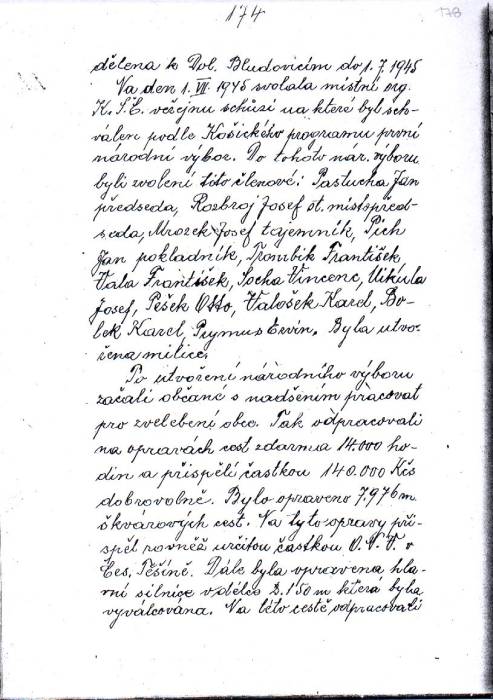 174
178
dělena k Dol. Bludovicím do 1.7.1945
Na den 1. VII. 1945 svolala místní org.
K.S.Č. veřejnu schůzi na které byl sch-
válen podle Košického programu první
národní výbor. Do tohoto nár. výboru
byli zvolení tito členové: Pastucha Jan
předseda, Rozbroj Josef st. místopřed-
seda, Mrozek Josef tajemník, Pich
Jan pokladník, Trombik František
Vala František, Socha Vincenc, Nikula
Josef, Pešek Otto, Valošek Karel, Bo-
lek Karel, Prymus Ervin. Byla utvo-
řena milice.
Po utvoření národního výboru
začali občané s nadšením pracovat
pro zvelebení obce. Tak odpracovali
na opravách cest zdarma 14.000 ho-
din a přispěli častkou 140.000 Kčs
dobrovolně. Bylo opraveno 7.976 m.
škvárových cest. Na tyto opravy při-
spěl rovněž určitou častkou O.N.V. v
Čes. Těšíně. Dále byla opravena hla-
vní silnice v délce 2.150 m která byla
vyválcována. Na této cestě odpracovali